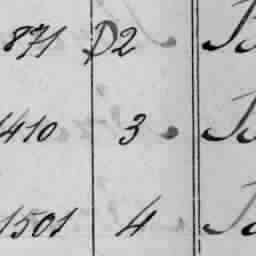 871 D2
1410 3
1501 4